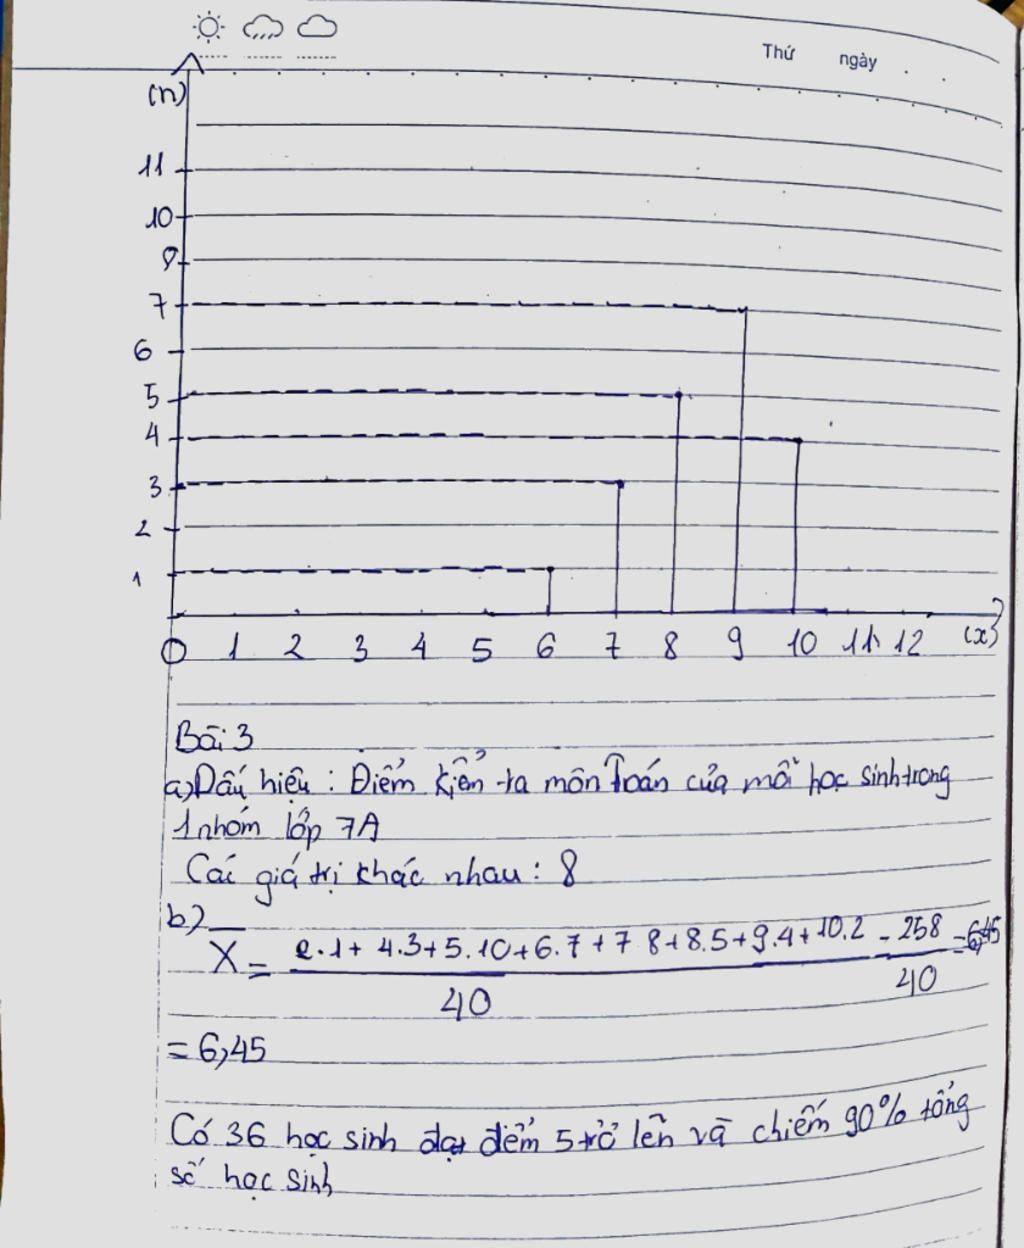 Thứ ngày
(n)
11
10
8
7
6
5
4
3
2
1
0 1 2 3 4 5 6 7 8 9 10 11 12 (x)
Bài 3
a) Dấu hiệu : Điểm kiển ta môn Toán của mỗi học sinh trong
1 nhóm lớp 7A
Các giá trị khác nhau : 8
b)
X̄ = 2.1 + 4.3 + 5.10 + 6.7 + 7 8 + 8.5 + 9.4 + 10.2 = 258 = 6,45
40 40
= 6,45
Có 36 học sinh đạt điểm 5 trở lên và chiếm 90% tổng
số học sinh